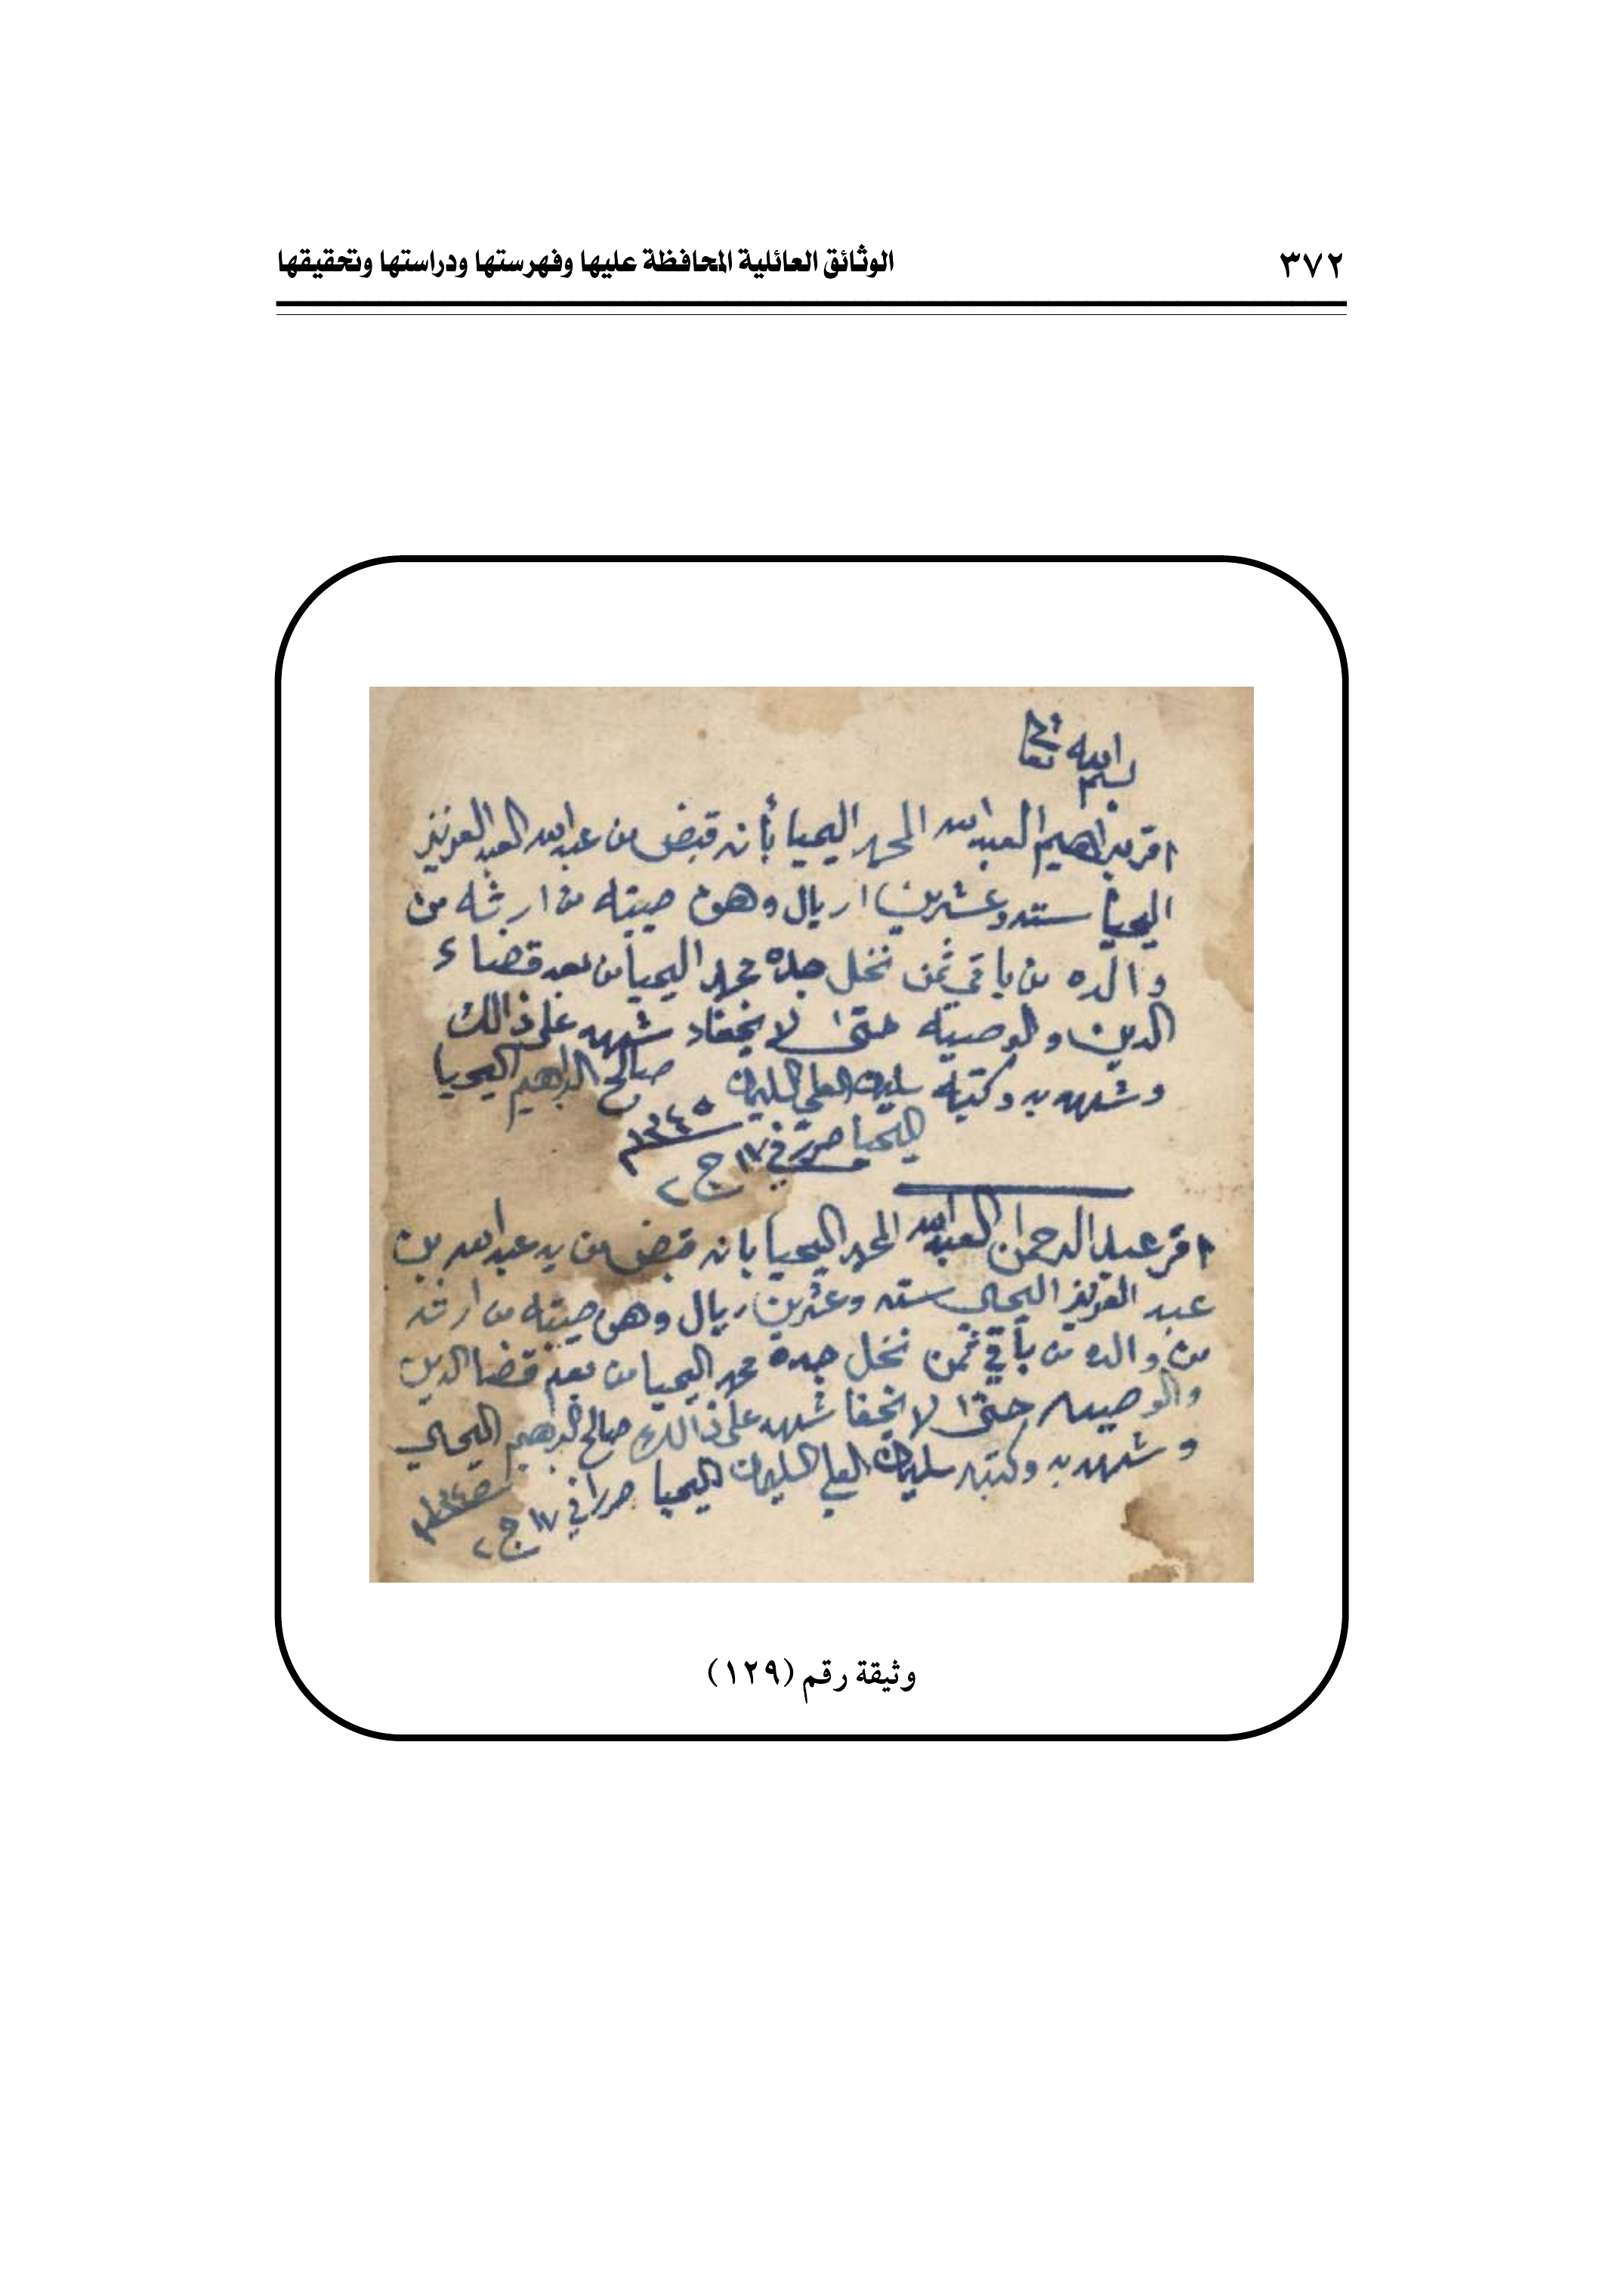 ٣٧٢
الوثائق العائلية المحافظة عليها وفهرستها ودراستها وتحقيقها
بسم الله تعا
اقر براهيم العبدالله المحمد اليحيا بأنه قبض من عبدالله العبد العزيز
اليحيا سته وعشرين اريال وهن صيبته من ارثه من
والده من باقي ثمن نخل جده محمد اليحيا من بعد قضاء
الدين ولوصيته حتى لا يخفا شهد على ذالك
صالح البراهيم اليحيا
وشهد به وكتبه سليمان العلي السليمان
اليحيا حرر في ١٧ ج ٢
١٣٤٥
اقر عبدالرحمن العبدالله المحمد اليحيا بانه قبض من يد عبدالله بن
عبد العزيز اليحاي سته وعشرين ريال وهن صيبته من ارثه
من والده من باقي ثمن نخل جده محمد اليحيا من بعد قضا الدين
والوصيه حتى لا يخفا شهد على ذالك صالح البرهيم اليحاي
وشهد به وكتبه سليمان العلي السليمان اليحيا حرر في ١٧ ج ٢
وثيقة رقم (١٢٩)